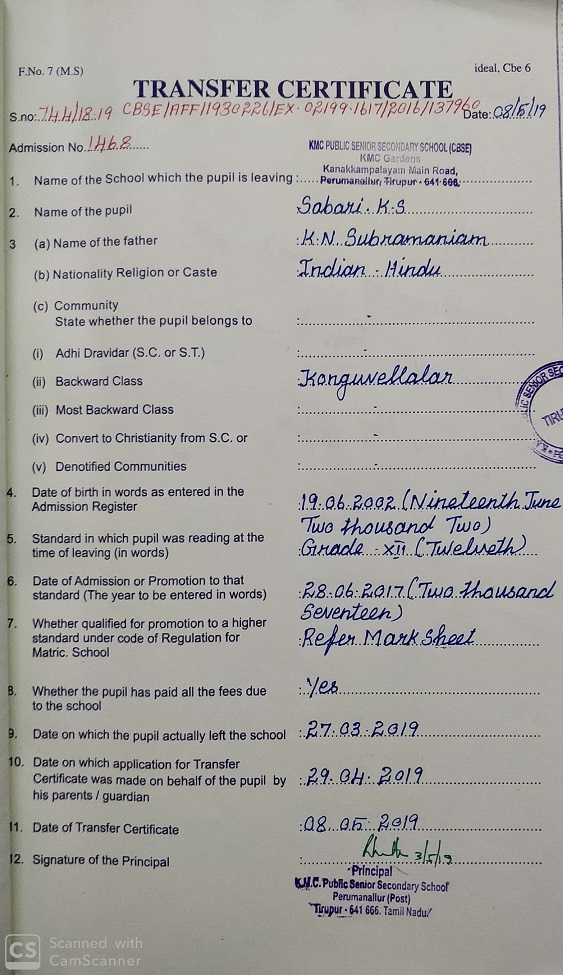 F.No. 7 (M.S)
ideal, Cbe 6
TRANSFER CERTIFICATE
S.no: 744/18.19 CBSE/AFF/1930226/EX-02199-1617/2016/137960 Date: 08/5/19
Admission No. 1468
KMC PUBLIC SENIOR SECONDARY SCHOOL (CBSE)
KMC Gardens
Kanakkampalayam Main Road,
1. Name of the School which the pupil is leaving : Perumanallur, Tirupur - 641 666.
2. Name of the pupil Sabari. K.S
3 (a) Name of the father : K.N. Subramaniam
(b) Nationality Religion or Caste : Indian - Hindu
(c) Community
State whether the pupil belongs to : -
(i) Adhi Dravidar (S.C. or S.T.) : -
(ii) Backward Class : Konguvellalar
(iii) Most Backward Class : -
(iv) Convert to Christianity from S.C. or : -
(v) Denotified Communities : -
4. Date of birth in words as entered in the : 19.06.2002 (Nineteenth June
Admission Register Two thousand Two)
5. Standard in which pupil was reading at the
time of leaving (in words) Grade - XII (Twelveth)
6. Date of Admission or Promotion to that : 28.06.2017 (Two thousand
standard (The year to be entered in words) Seventeen)
7. Whether qualified for promotion to a higher
standard under code of Regulation for : Refer Mark Sheet
Matric. School
8. Whether the pupil has paid all the fees due : Yes
to the school
9. Date on which the pupil actually left the school : 27.03.2019
10. Date on which application for Transfer
Certificate was made on behalf of the pupil by : 29.04.2019
his parents / guardian
11. Date of Transfer Certificate : 08.05.2019
12. Signature of the Principal : 3/5/19
Principal
K.M.C. Public Senior Secondary School
Perumanallur (Post)
Tirupur - 641 666. Tamil Nadu.
CS Scanned with
CamScanner